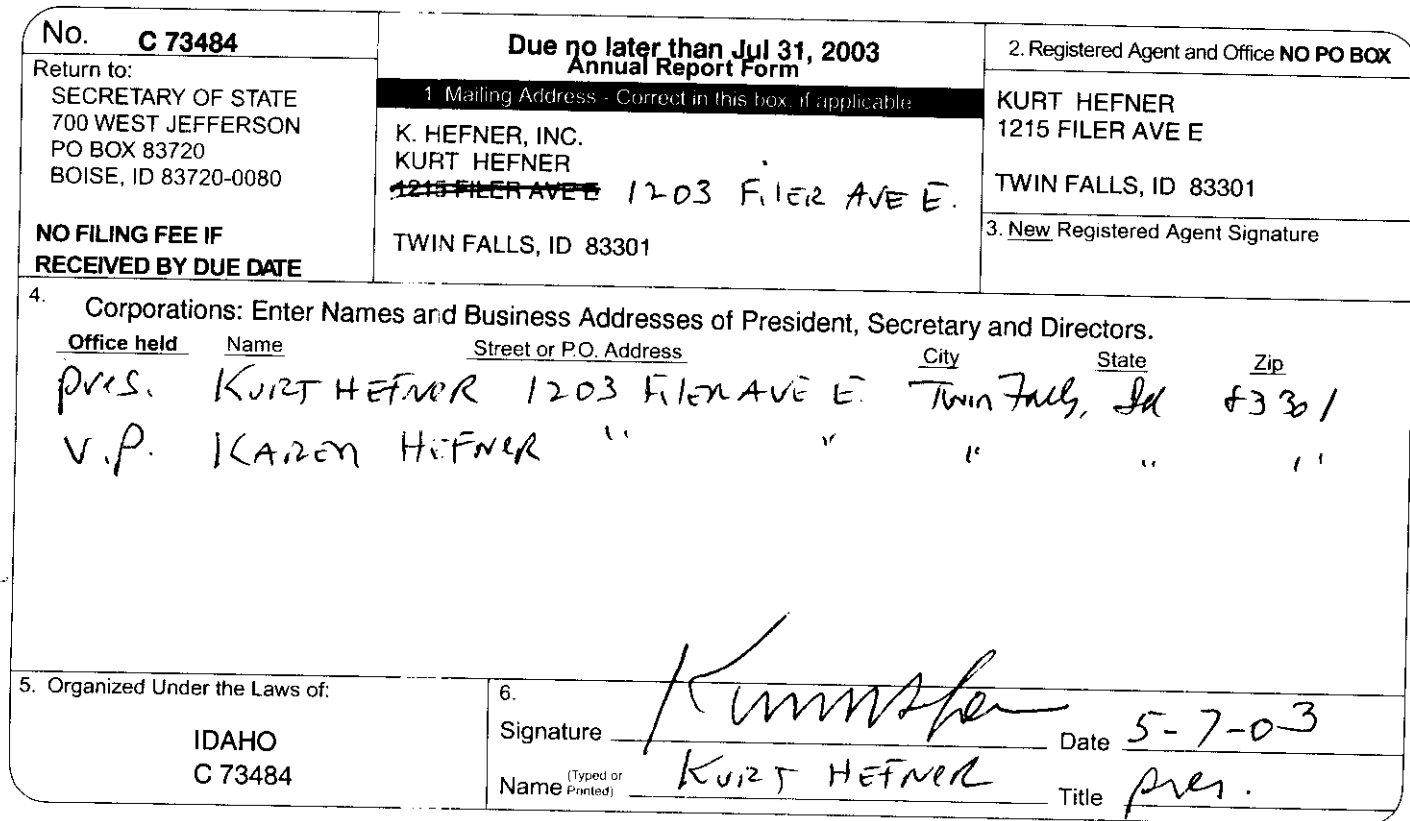 No. C 73484
Return to:
SECRETARY OF STATE
700 WEST JEFFERSON
PO BOX 83720
BOISE, ID 83720-0080
NO FILING FEE IF
RECEIVED BY DUE DATE
Due no later than Jul 31, 2003
Annual Report Form
1. Mailing Address - Correct in this box, if applicable
K. HEFNER, INC.
KURT HEFNER
1215 FILER AVE E 1203 FilER AVE E.
TWIN FALLS, ID 83301
2. Registered Agent and Office NO PO BOX
KURT HEFNER
1215 FILER AVE E
TWIN FALLS, ID 83301
3. New Registered Agent Signature
4. Corporations: Enter Names and Business Addresses of President, Secretary and Directors.
Office held Name Street or P.O. Address City State Zip
pres. KURT HEFNER 1203 FilER AVE E. Twin Falls, Id 83301
V.P. KAREN HEFNER " " " " "
5. Organized Under the Laws of:
IDAHO
C 73484
6.
Signature Date 5-7-03
Name (Typed or Printed) KURT HEFNER Title pres.